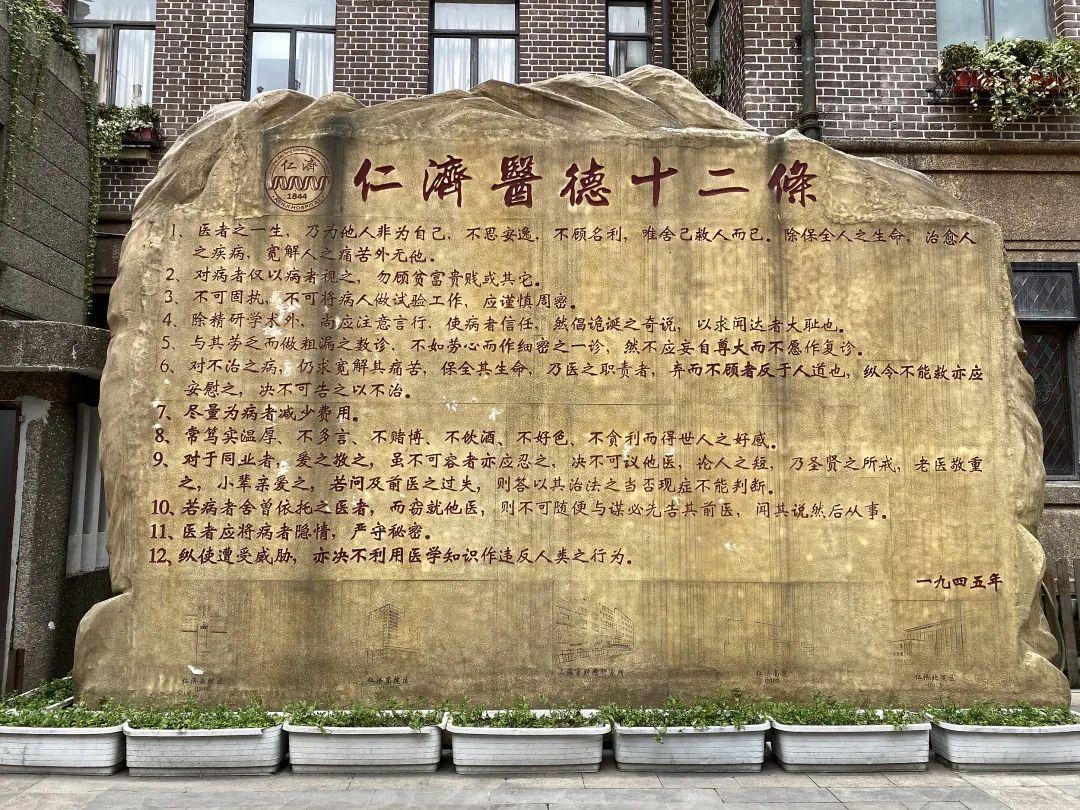 仁濟
1844
仁濟醫德十二條
1、医者之一生，乃为他人非为自己，不思安逸，不顾名利，唯舍己救人而已。除保全人之生命，治愈人
之疾病，宽解人之痛苦外无他。
2、对病者仅以病者视之，勿顾贫富贵贱或其它。
3、不可固执，不可将病人做试验工作，应谨慎周密。
4、除精研学术外，尚应注意言行，使病者信任，然倡诡诞之奇说，以求闻达者大耻也。
5、与其劳之而做粗漏之数诊，不如劳心而作细密之一诊，然不应妄自尊大而不愿作复诊。
6、对不治之病，仍求宽解其痛苦，保全其生命，乃医之职责者，弃而不顾者反于人道也，纵令不能救亦应
安慰之，决不可告之以不治。
7、尽量为病者减少费用。
8、常笃实温厚、不多言、不赌博、不饮酒、不好色、不贪利而得世人之好感。
9、对于同业者，爱之敬之，虽不可容者亦应忍之，决不可议他医，论人之短，乃圣贤之所戒，老医敬重
之，小辈亲爱之，若问及前医之过失，则答以其治法之当否现症不能判断。
10、若病者舍曾依托之医者，而窃就他医，则不可随便与谋必先告其前医，闻其说然后从事。
11、医者应将病者隐情，严守秘密。
12、纵使遭受威胁，亦决不利用医学知识作违反人类之行为。
一九四五年
仁济西院区
仁济东院区
仁济南院
仁济北院区